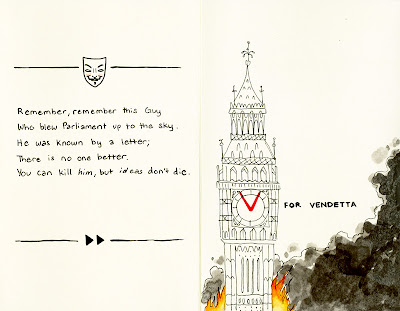 Remember, remember this Guy
Who blew Parliament up to the sky.
He was known by a letter;
There is no one better.
You can kill him, but ideas don't die.
V FOR VENDETTA